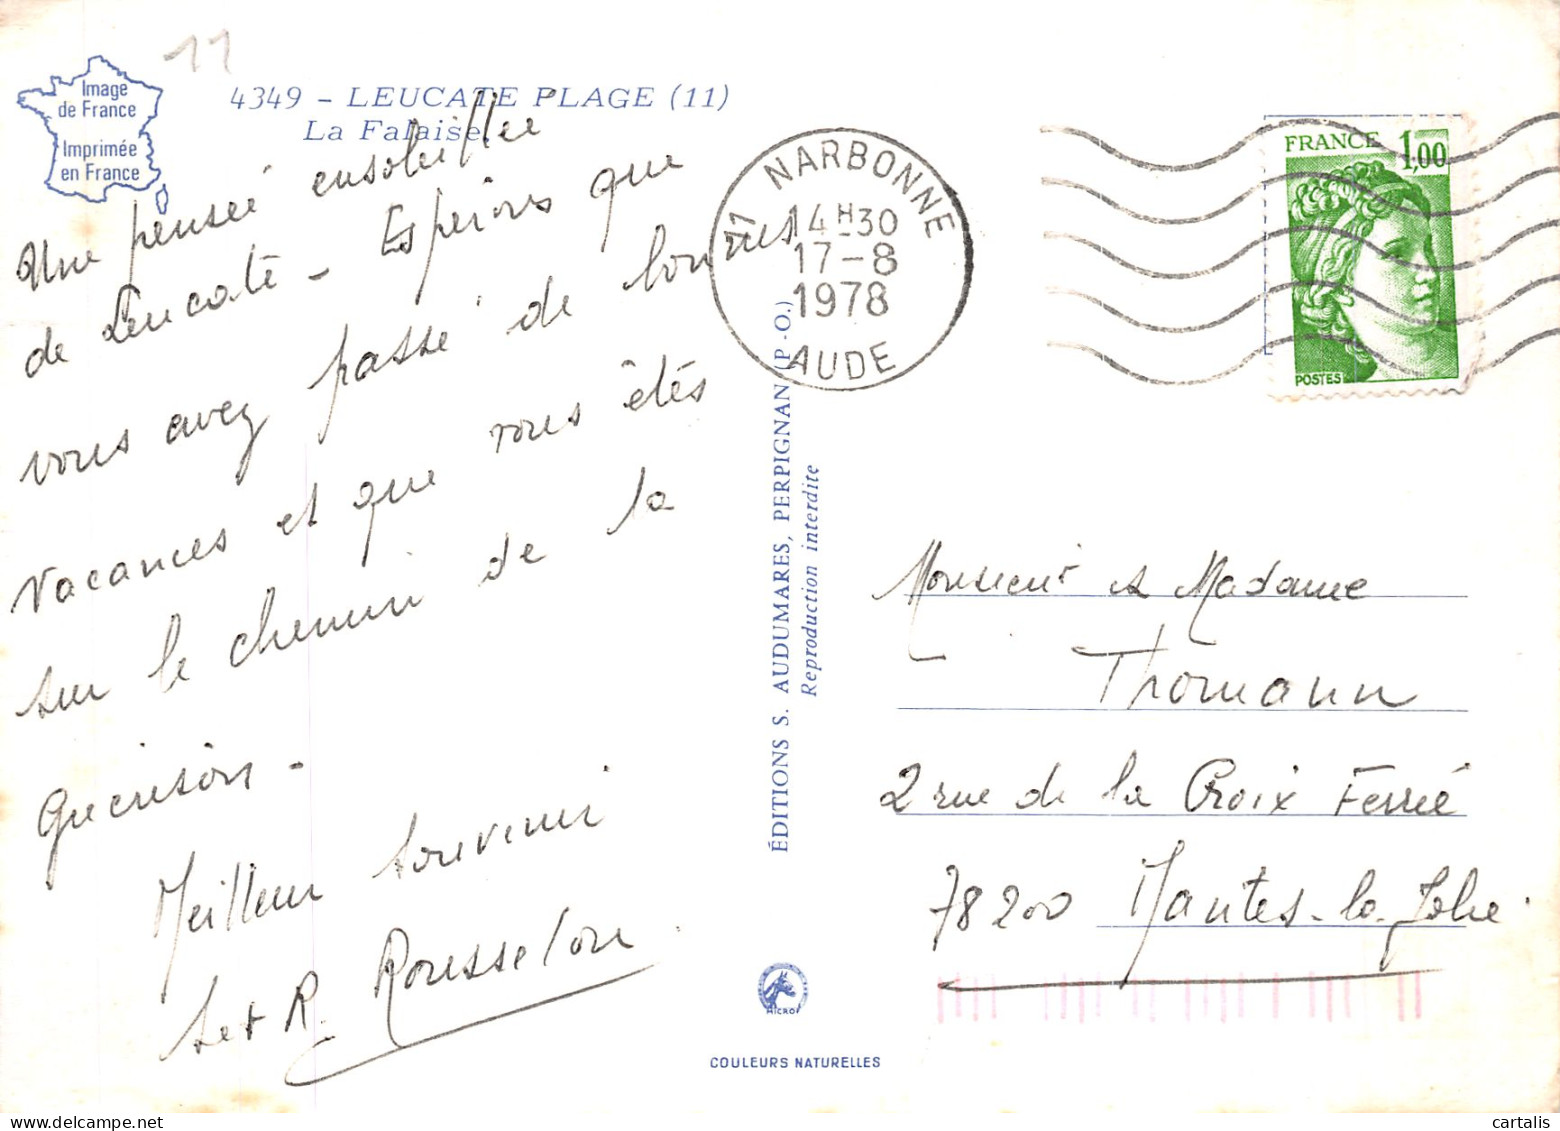 11
Image
de France
Imprimée
en France
4349 - LEUCATE PLAGE (11)
La Falaise
Une pensée ensoleillée
de Leucate - Espérons que
vous avez passé de bonnes
vacances et que vous êtes
sur le chemin de la
guérison -
Meilleur souvenir
et R. Rousselon
11 NARBONNE
14H30
17-8
1978
AUDE
FRANCE 1,00
POSTES
ÉDITIONS S. AUDUMARES, PERPIGNAN (P.-O.)
Reproduction interdite
Monsieur et Madame
Thomann
2 rue de la Croix Ferrée
78200 Mantes-la-Jolie.
MICRO
COULEURS NATURELLES
cartalis